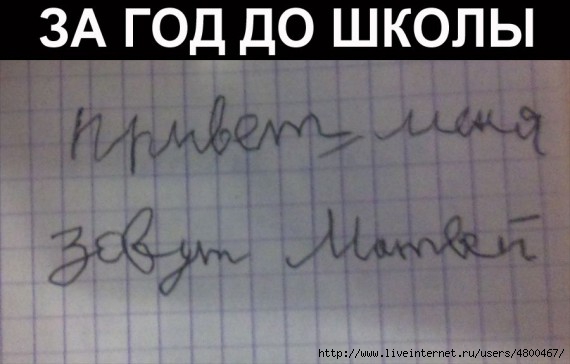 ЗА ГОД ДО ШКОЛЫ
привет меня
зовут Матвей
http://www.liveinternet.ru/users/4800467/